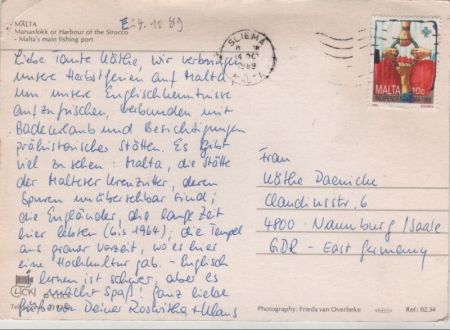 MALTA
Marsaxlokk or Harbour of the Sirocco
- Malta's main fishing port
E: 7.10 89
SLIEMA
1989
MALTA 10c
Liebe Tante Käthe, wir verbringen
unsere Herbstferien auf Malta
um unsere Englischkenntnisse
aufzufrischen, verbunden mit
Badeurlaub und Besichtigungen
prähistorischer Stätten. Es gibt
viel zu sehen: Malta, die Stätte
der Malteser Kreuzritter, deren
Spuren unübersehbar sind;
die Engländer, die lange Zeit
hier lebten (bis 1964); die Tempel
aus grauer Vorzeit, wo es hier
eine Hochkultur gab. - Englisch
lernen ist schwer, aber es
macht Spaß! Ganz liebe
Grüße von Deiner Roswitha + Klaus
Frau
Käthe Daenicke
Claudiusstr. 6
4800 Naumburg/Saale
GDR - East Germany
Photography: Frieda van Overbeke
Ref: 02.34